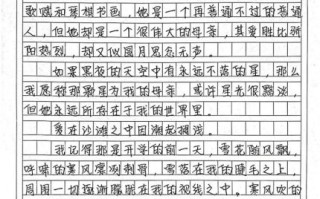 歌赋和琴棋书画,他是一个再普通不过的普通
人,但他却是一个很伟大的母亲,其爱胜比骄
阳热烈,却又似圆月悉忽无声。
如果黑夜的天空中有永远不落的星,那么
我愿称那颗星为我的母亲,或许星光很黯淡,
但她永远所存在于我的世界里。
爱在沙滩之中因潮起拥浅。
我记得那是开学的前一天,雪花随风飘,
呼啸的寒风凛冽刺骨,雪落在我的睫毛之上,
周围一切逐渐朦胧在我的视线之中。寒风吹的